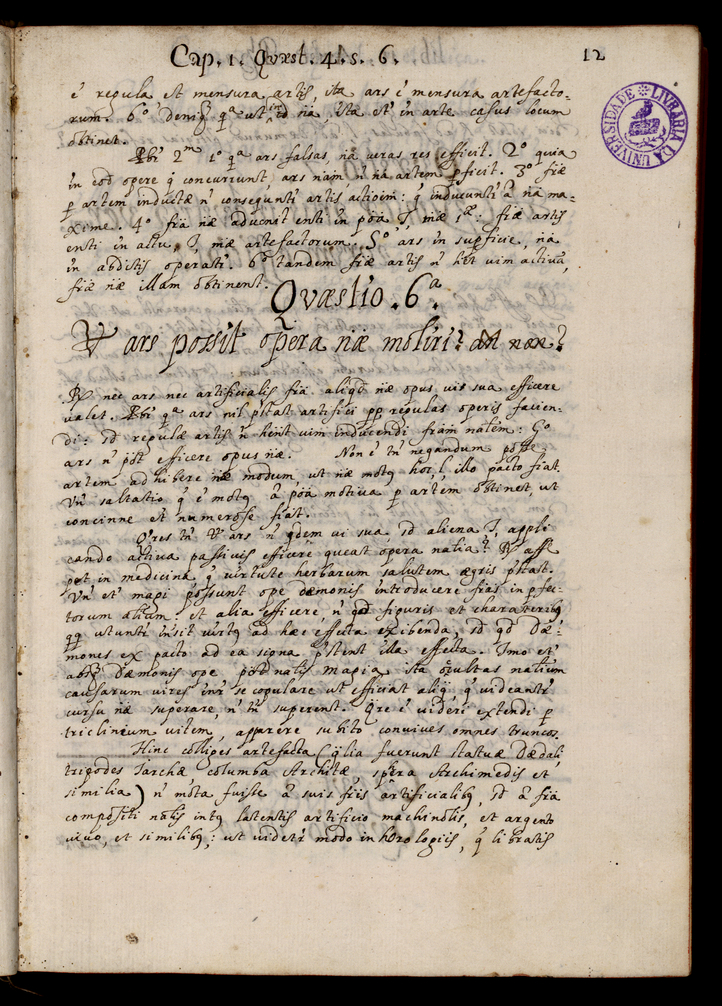 Cap. 1. Quæst. 4. 5. 6.
12
LIVRARIA DA UNIVERSIDADE
é regula et mensura artis, ita ars é mensura artefacto-
rum. 6º deniq; qª ut in ña, ita et in arte casus locum
obtinet.
2m 1º qª ars falsas, ña veras res efficit. 2º quia
in eod opere q concurrunt ars nam ñ ña artem pficit. 3º fræ
p artem inductæ ñ consequuntr artis : q inducuntr a ña ma-
xime. 4º fra ñæ advenit enti in poa , ñæ 1æ: fræ artis
enti in actu, ñæ artefactorum. 5º ars in supficie, ña
in abditis operatr. 6º tandem fræ artis ñ hent vim activã,
fræ ñæ illam obtinent.
Quæstio. 6ª.
V ars possit opera ñæ moliri? an non?
R nec ars nec artificialis fra aliqd ñæ opus vi sua efficere
valet. qª ars nil pstat artifici pp regulas operis facien-
di: sd regulæ artis ñ hent vim inducendi fram nalem: Go
ars ñ pot efficere opus ñæ. Non é tñ negandum posse
artem adhibere ñæ modum, ut ñæ motq hoc, l illo pacto fiat.
Vn saltatio q é motq a poa motiva p artem obtinet, ut
concinne et numerose fiat.
Qres tñ V ars ñ qdem vi sua sd aliena , appli
cando activa passivis efficere queat opera nalia? R asst
pet in medicina, q virtute herbarum salutem ægris pstat.
Vn et magi possunt ope dæmonis introducere fras inpfec-
torum alium: et alia efficere, ñ qd figuris et charateribq
qq utuntr insit virtq ad hæc effecta exibenda, sd qd Dæ-
mones ex pacto ad ea signa pstent illa effecta. Imo et
absq Dæmonis ope pot nalis magia ita ocultas nalium
causarum vires inr se copulare ut efficiat aliq, q videantr
cursu ñæ superare, ñ tñ superent. Qre é videri extendi p
triclinium vitem, apparere subito convivas omnes truncos.
Hinc colliges artefacta (qlia fuerunt statuæ Dædali
tripodes Iarchæ, columba Architæ, sphera Archimedis et
similia) ñ mota fuisse a suis fris artificialibq, sd a fra
compositi nalis intq latentis artificio machinolis, et argento
vivo, et similibq: ut videtr modo in horologiis, q libratis